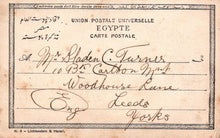 UNION POSTALE UNIVERSELLE
EGYPTE
CARTE POSTALE
A Mr Sladen C. Turner
10 Carlton Mnt
Woodhouse Lane
Leeds
Eng Yorks
Lichtenstern & Harari,